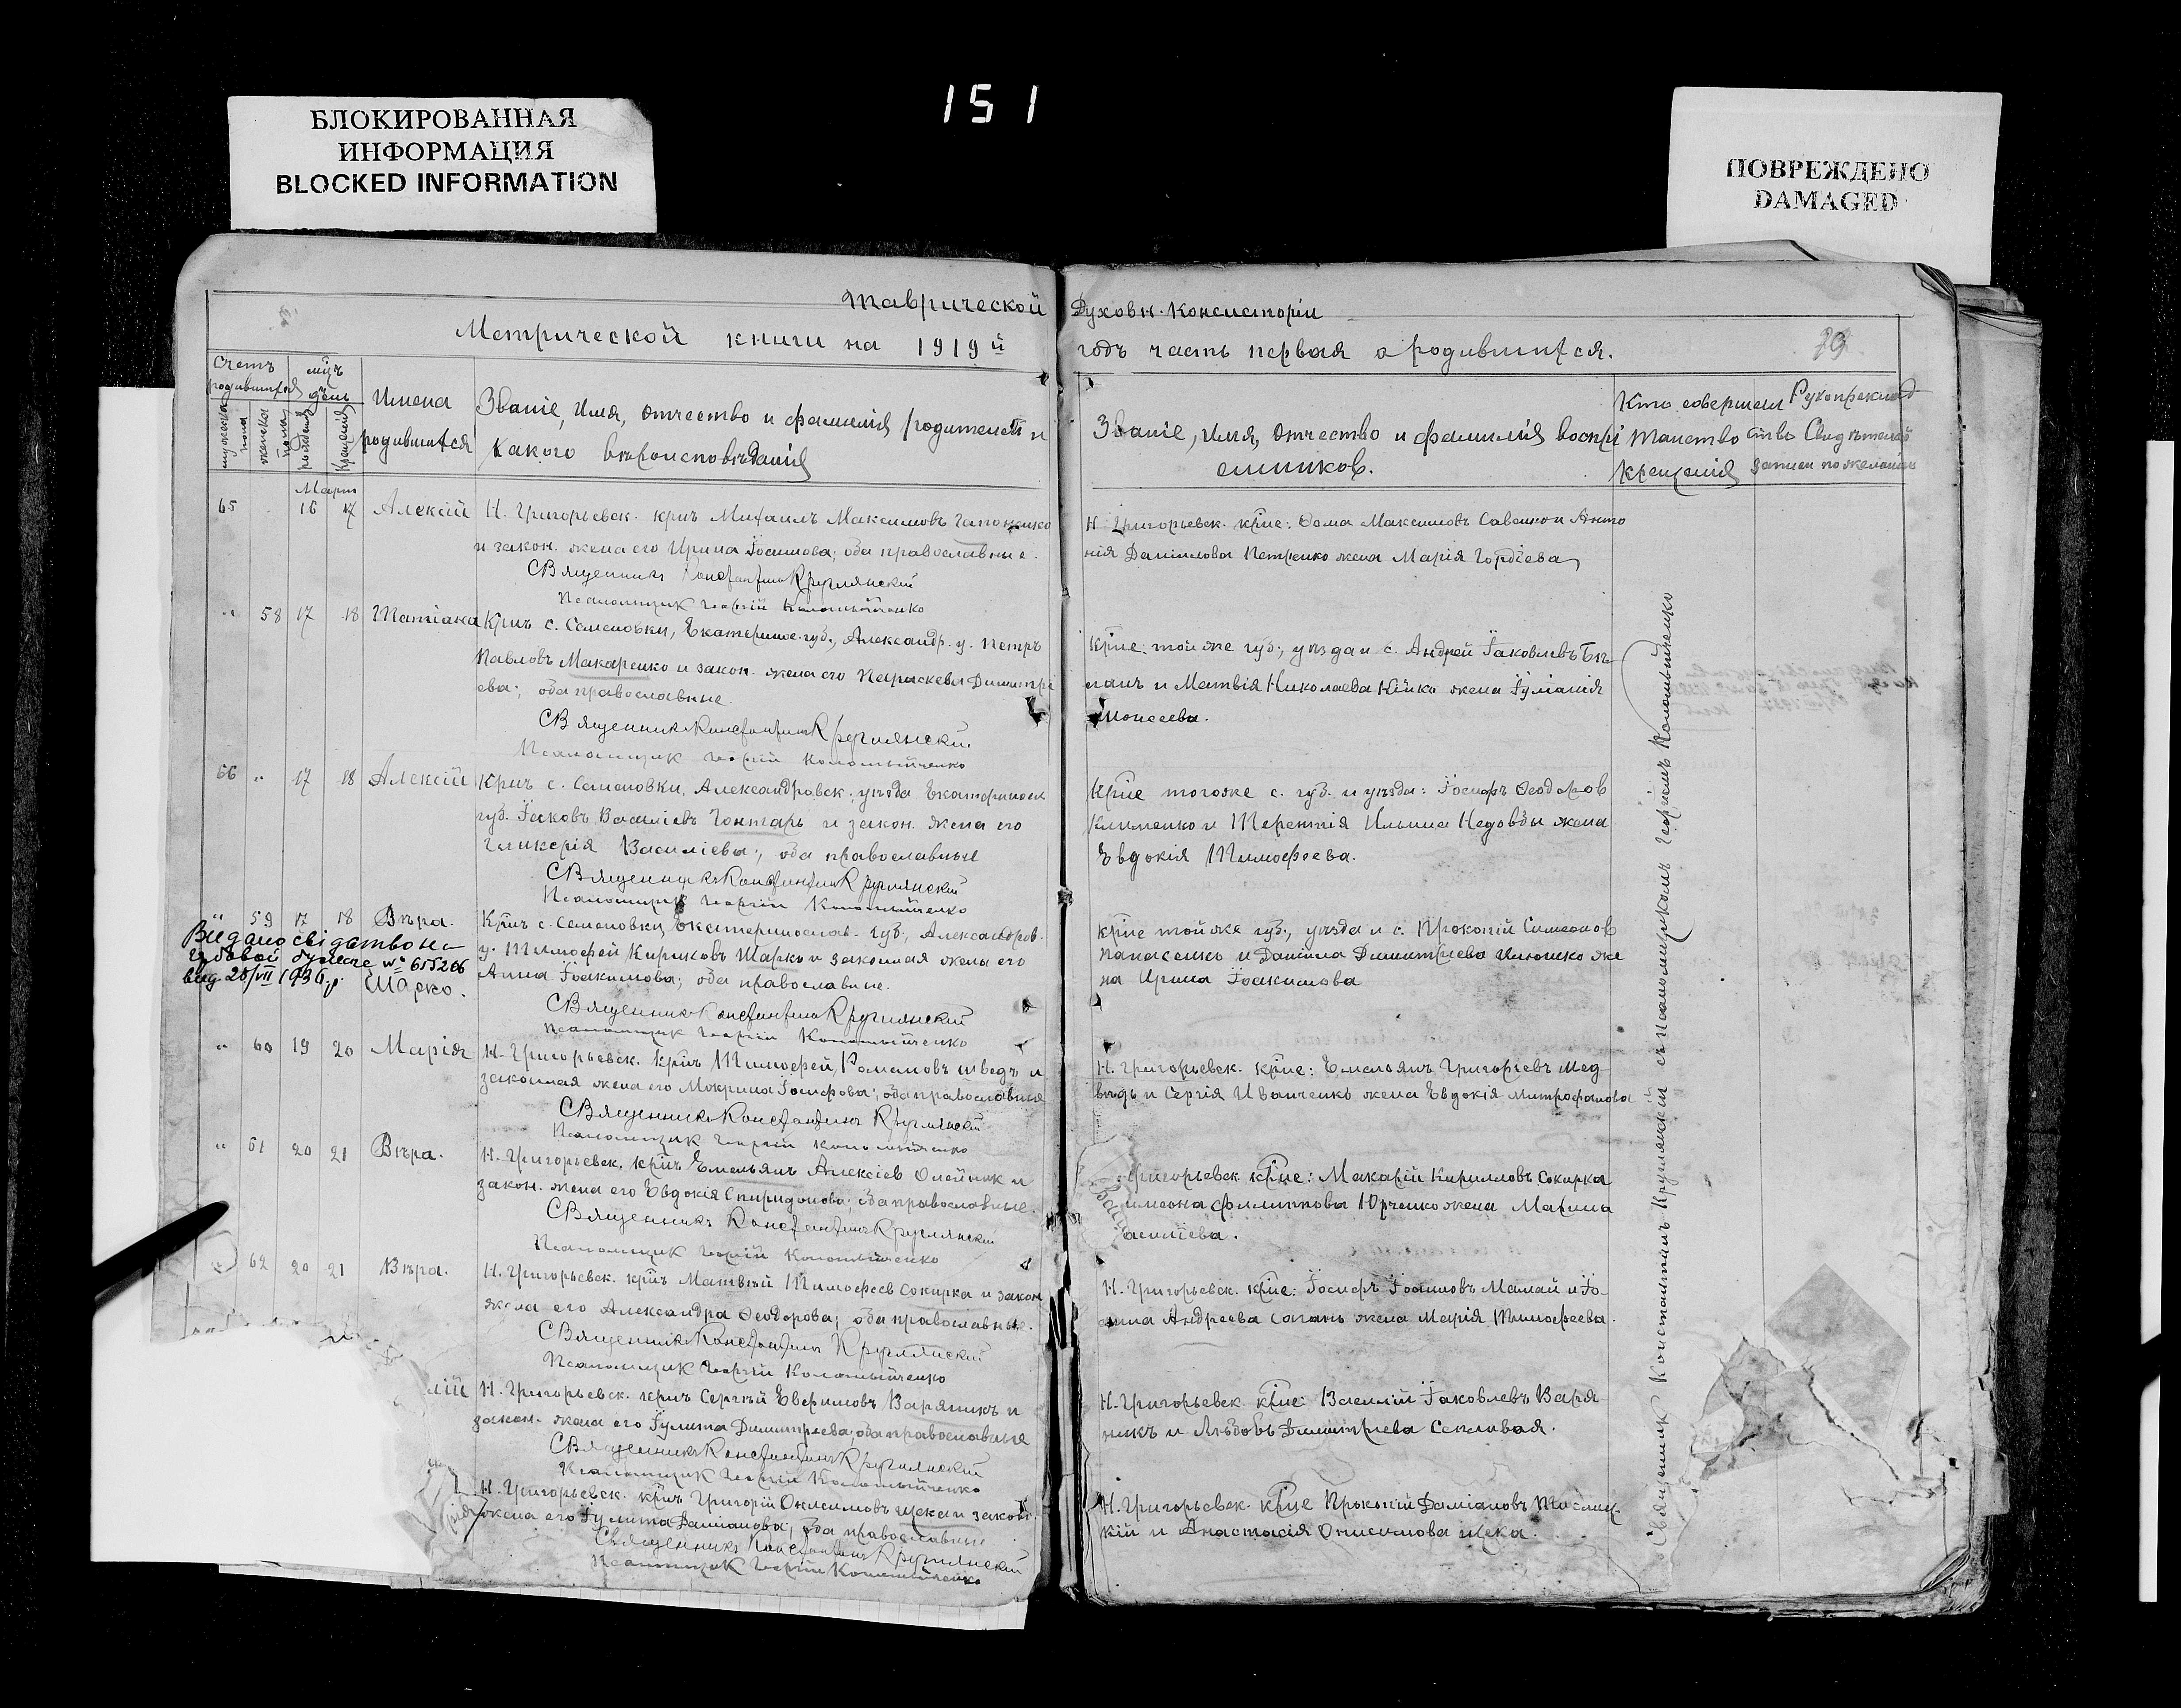 151
БЛОКИРОВАННАЯ
ИНФОРМАЦИЯ
BLOCKED INFORMATION
ПОВРЕЖДЕНО
DAMAGED
Таврической Духовн. Консисторіи
Метрической книги на 1919й годъ часть первая о родившихся.
79
Счетъ родившихся
мужеска пола
женска пола
мцъ день
рожденія
крещенія
Имена
родившихся
Званіе, Имя, Отчество и фамилія родителей и
какого вѣроисповѣданія
Званіе, Имя, Отчество и фамилія воспрі
емников.
Кто совершал
таинство
крещенія
Рукоприклад
ство Свидѣтелей
записи по желанію
Март
65 16 17 Алексій Н. Григорьевск. крнъ Михаилъ Максимовъ Гапоненко
и закон. жена его Ирина Іоаннова; оба православные.
Священникъ Константинъ Круглянский
Псаломщик Георгій Коломыйченко
Н Григорьевск. крне: Фома Максимовъ Савенко и Анто
нія Даниілова Петренко жена Марія Гордіева
" 58 17 18 Татіана Крнъ с. Семеновки, Екатерин. губ., Александр. у. Петръ
Павловъ Макаренко и закон. жена его Параскева Димитрі
ева; оба православные.
Священникъ Константинъ Круглянский
Псаломщик Георгій Коломыйченко
Крне: той же губ., уѣзда и с. Андрей Іаковлевъ
и Матвія Николаева жена Іуліанія
Моисеева.
66 " 17 18 Алексій Крнъ с. Семеновки, Александровск. уѣзда Екатериносл
губ. Іаковъ Василіевъ Гонтарь и закон. жена его
Гликерія Василіева; оба православные
Священникъ Константинъ Круглянский
Псаломщик Георгій Коломыйченко
Крне тогоже с. губ. и уѣзда: Іосифъ Феодоров
Клименко и Терентія Ильина Недовды жена
Евдокія Тимофеева.
" 59 17 18 Вѣра. Крнъ с. Семеновки, Екатеринослав. губ., Александров.
у. Тимофей Кириловъ Шарко и законная жена его
Анна Іоакимова; оба православные.
Видано свідоцтво на
гербовой бумаге № 615266
вид 28/VII 1936 р. Шарко.
Священникъ Константинъ Круглянский
Псаломщик Георгій Коломыйченко
крне той же губ., уѣзда и с. Прокопій Симеонов
Панасенко и Даніила Димитріева же
на Ирина Іоакимова
" 60 19 20 Марія Н. Григорьевск. крнъ Тимофей Романовъ Шведъ и
законная жена его Макрина Іосифова; оба православные
Священникъ Константинъ Круглянский
Псаломщик Георгій Коломыйченко
Н. Григорьевск. крне: Емельянъ Григорьевъ Мед
вѣдь и Сергія Иванченко жена Евдокія Митрофанова
" 61 20 21 Вѣра. Н. Григорьевск. крнъ Емельянъ Алексіев Олейник и
закон. жена его Евдокія Спиридонова; оба православные.
Священникъ Константинъ Круглянский
Псаломщик Георгій Коломыйченко
Григорьевск крне: Макарій Кирилловъ Сокирка
имеона Филиппова Юрченко жена Марина
асиліева.
" 62 20 21 Вѣра. Н. Григорьевск. крнъ Матвѣй Тимофеевъ Сокирка и закон
жена его Александра Феодорова; оба православные.
Священникъ Константинъ Круглянский
Псаломщик Георгій Коломыйченко
Н. Григорьевск. крне: Іосифъ Іоанновъ Малай и Іо-
анна Андреева жена Марія Тимофеева.
лій Н. Григорьевск. крнъ Сергѣй Евфимовъ Вареникъ и
закон. жена его Іулита Димитріева; оба православные
Священникъ Константинъ Круглянский
Псаломщик Георгій Коломыйченко
Н. Григорьевск крне Василій Іаковлевъ Варя
никъ и Любовь Димитріева
Н. Григорьевск. крнъ Григорій Онисимовъ Щека и закон.
жена его Іулита Даміанова; оба православные
Священникъ Константинъ Круглянский
Псаломщик Георгій Коломыйченко
Н. Григорьевск. крне Прокопій Даміановъ
кій и Анастасія Онисимова Щека.
Священник Константинъ Круглянскій съ Псаломщикомъ Георгіемъ Коломыйченко